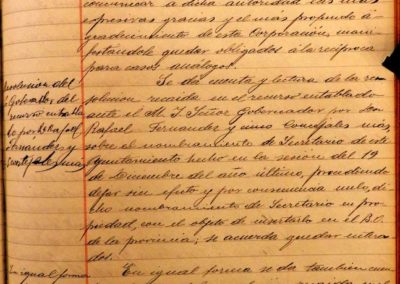 comunicar á dicha autoridad las más
expresivas gracias y el más profundo a-
gradecimiento de esta Corporación, mani-
festándole quedar obligados á la recíproca
para casos análogos.
Resolución del
Gobernador del
recurso entabla
do por D. Rafael
Fernandez y
Se da cuenta y lectura de la re-
solución recaida en el recurso entablado
ante el M. I. Señor Gobernador por Don
Rafael Fernandez y cinco Concejales más,
sobre el nombramiento de Secretario de este
Ayuntamiento hecho en la sesión del 19
de Diciembre del año último, procediendo
dejar sin efecto y por consecuencia nulo, di-
cho nombramiento de Secretario en pro-
piedad, con el objeto de insertarlo en el B.O.
de la provincia; se acuerda quedar entera-
dos.
In igual forma
En igual forma se da tambien cuen